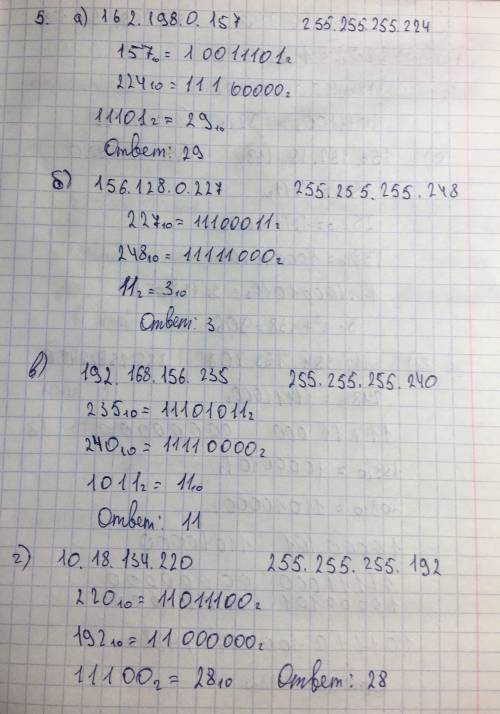 5. а) 162.198.0.157 255.255.255.224
157₁₀ = 10011101₂
224₁₀ = 11100000₂
11101₂ = 29₁₀
Ответ: 29
б) 156.128.0.227 255.255.255.248
227₁₀ = 11100011₂
248₁₀ = 11111000₂
11₂ = 3₁₀
Ответ: 3
в) 192.168.156.235 255.255.255.240
235₁₀ = 11101011₂
240₁₀ = 11110000₂
1011₂ = 11₁₀
Ответ: 11
г) 10.18.134.220 255.255.255.192
220₁₀ = 11011100₂
192₁₀ = 11000000₂
11100₂ = 28₁₀ Ответ: 28